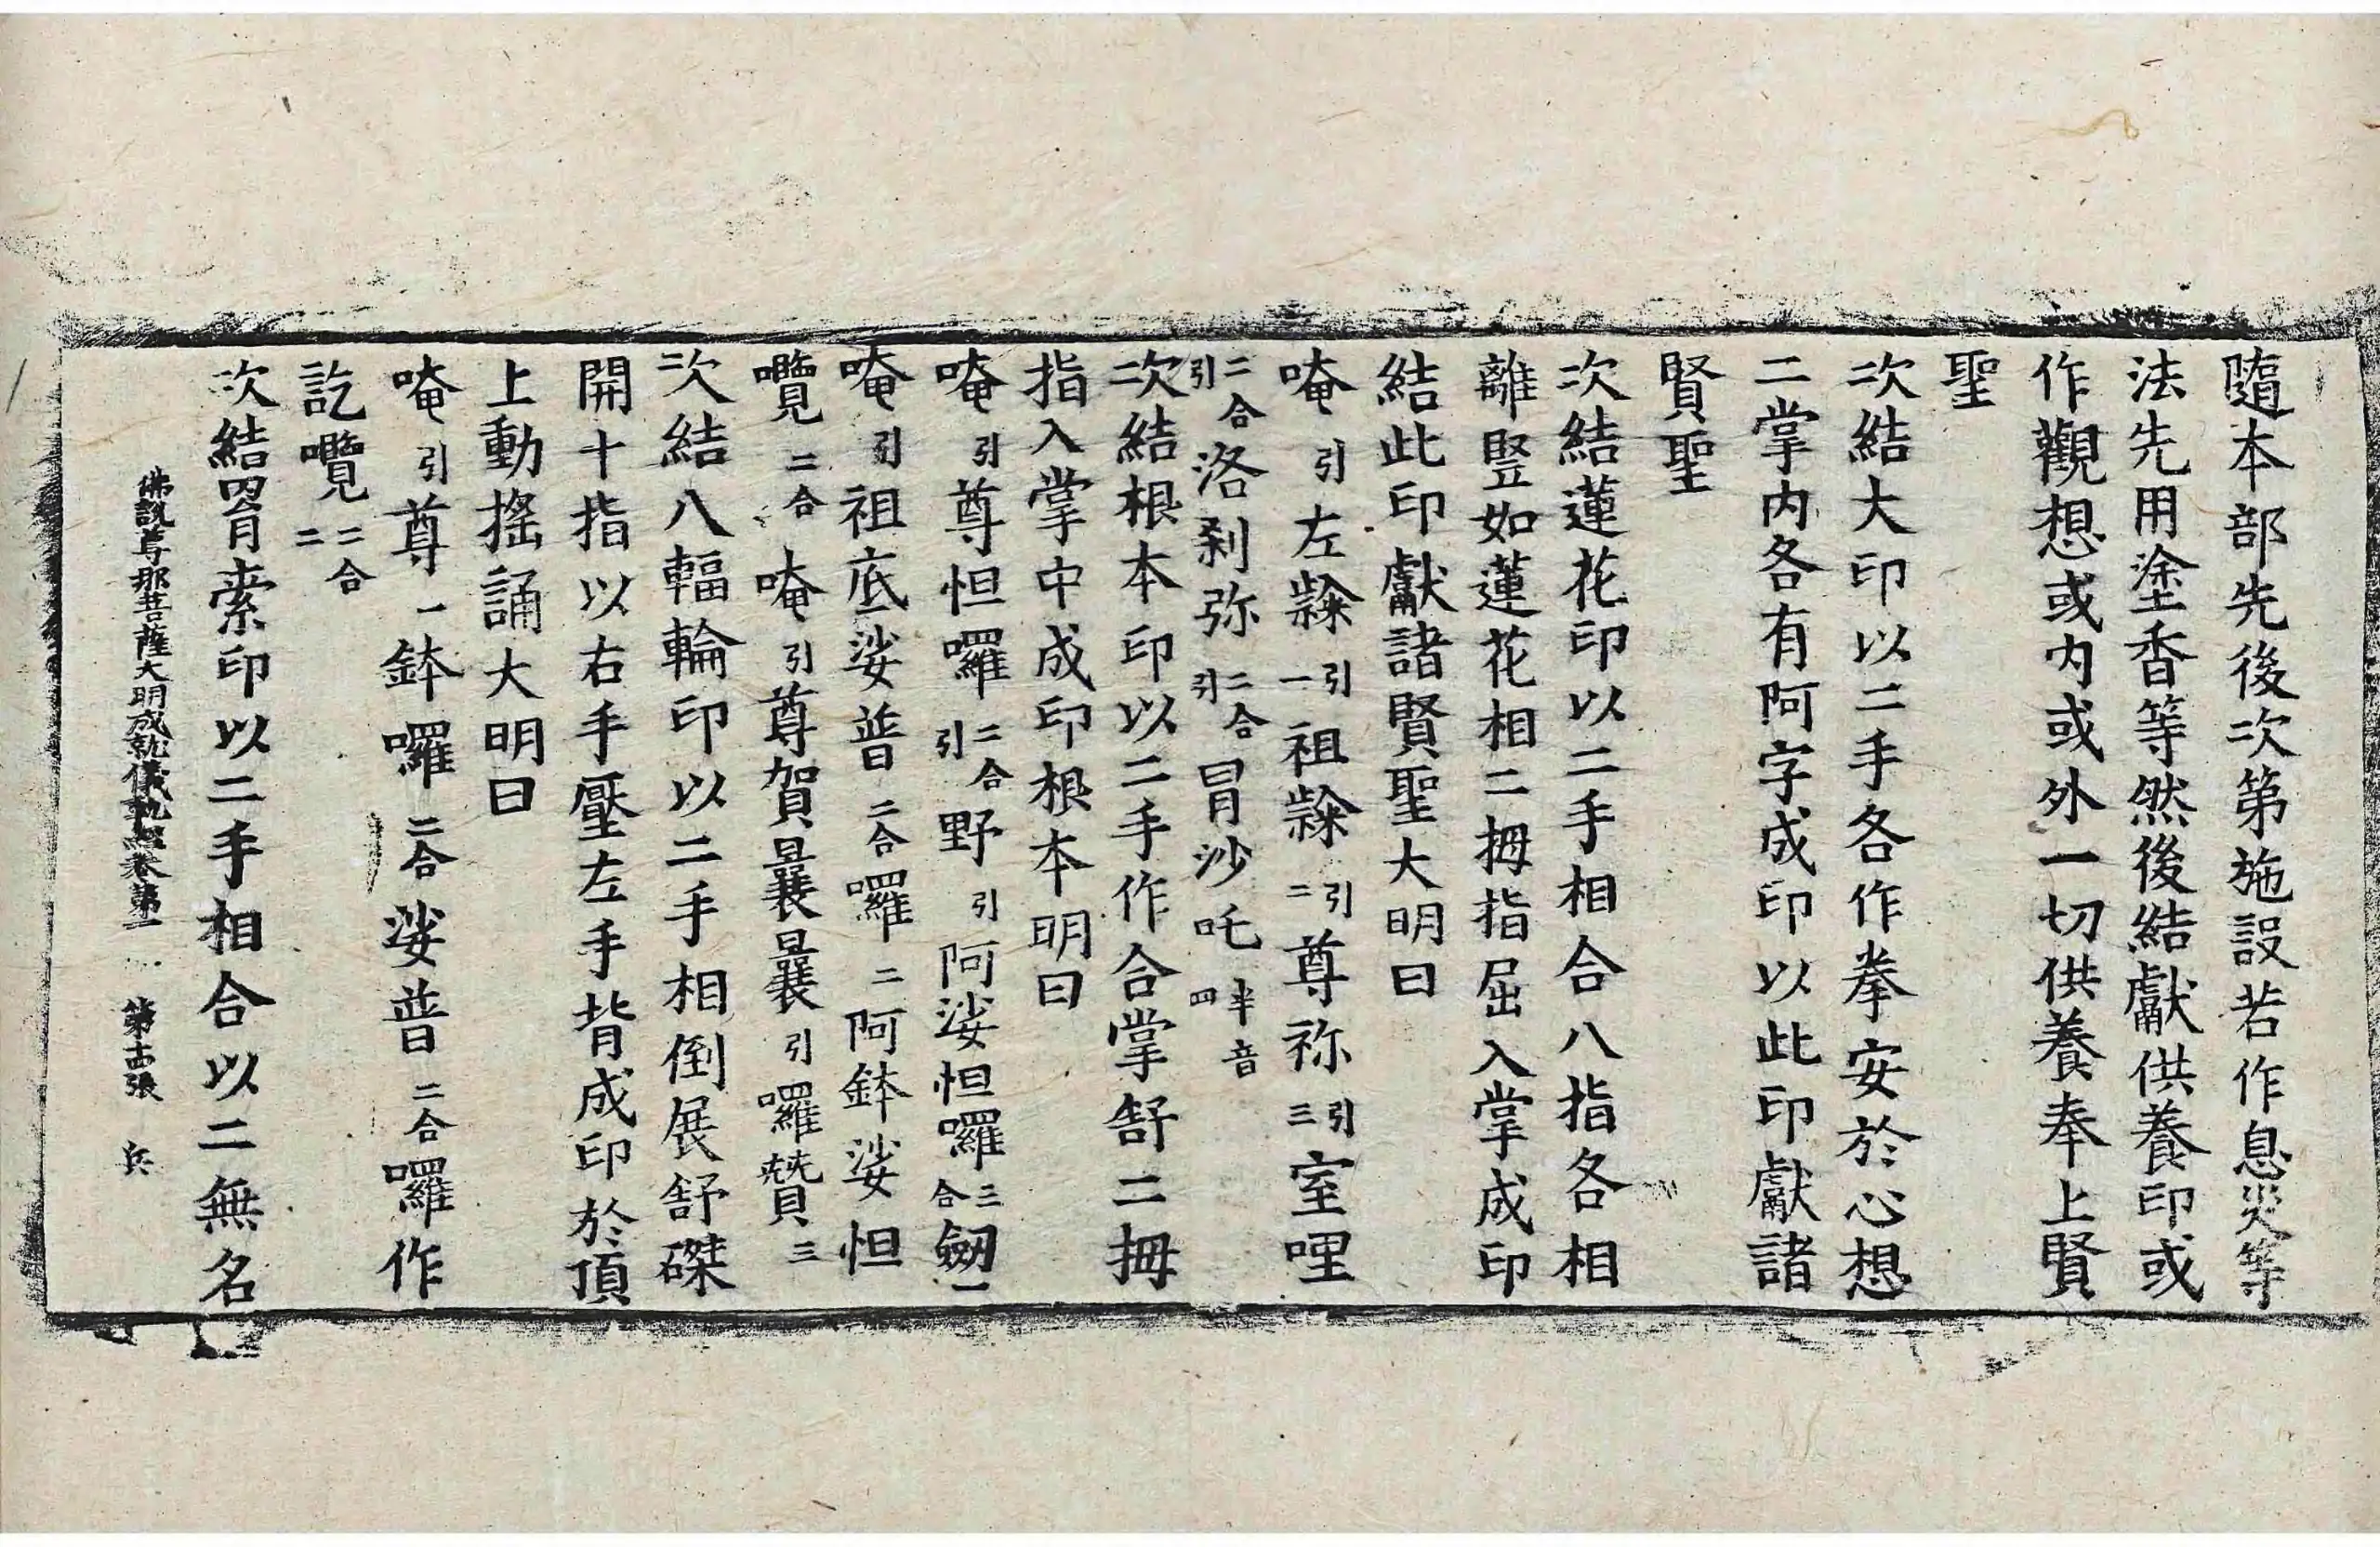 隨本部先後次第施設若作息災等
法先用塗香等然後結獻供養印或
作觀想或内或外一切供養奉上賢
聖
次結大印以二手各作拳安於心想
二掌内各有阿字成印以此印獻諸
賢聖
次結蓮花印以二手相合八指各相
離豎如蓮花相二拇指屈入掌成印
結此印獻諸賢聖大明曰
唵引左隸引一祖隸引二尊祢引三室哩
二合引洛剎弥二合引冐沙吒半音四
次結根本印以二手作合掌舒二拇
指入掌中成印根本明曰
唵引尊怛囉二合引野引阿娑怛囉三合劒一
唵引祖底娑普二合囉二阿鉢娑怛
囕二合唵引尊賀曩曩引囉贊三
次結八輻輪印以二手相倒展舒磔
開十指以右手壓左手背成印於頂
上動搖誦大明曰
唵引尊一鉢囉二合娑普二合囉作
訖囕二合二
佛說尊那菩薩大明成就儀軌經卷第二 第十四張 兵
次結罥索印以二手相合以二無名